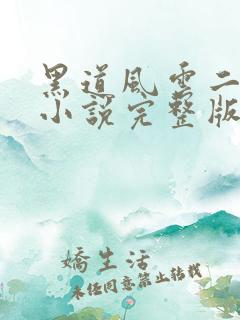 黑道风云二
小说完整版
嬌生活
未经同意禁止转载